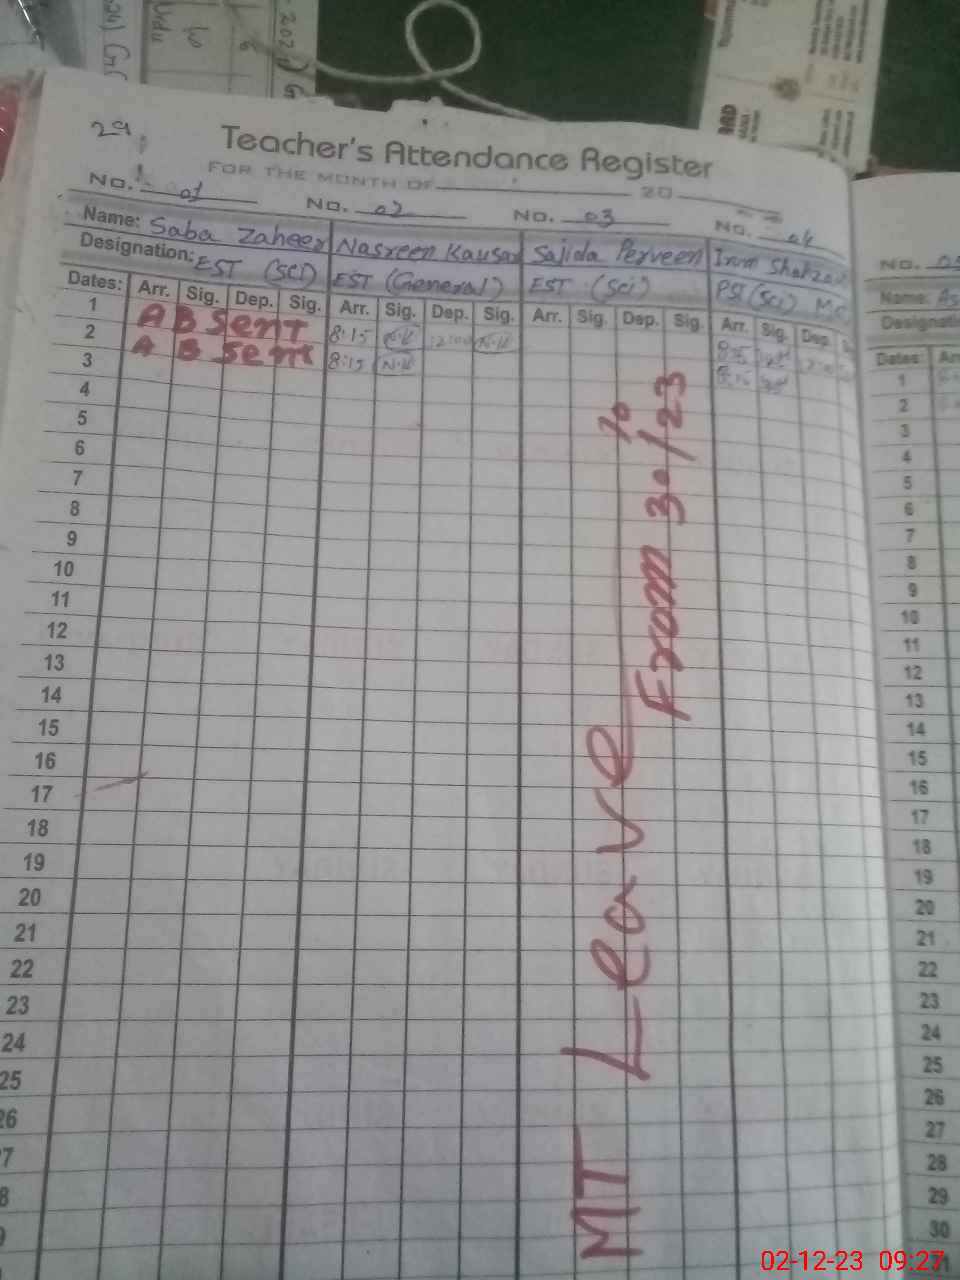 29
Teacher's Attendance Register
FOR THE MONTH OF 20
No. 01 No. 02 No. 03 No. 04
Name: Saba Zaheer Nasreen Kausar Sajida Perveen Irum
Designation: EST (SCI) EST (General) EST (Sci) PST (Sci)
Dates: Arr. Sig. Dep. Sig. Arr. Sig. Dep. Sig. Arr. Sig. Dep. Sig. Arr. Sig. Dep.
1 Absent 8:15 N.K 12:00 N.K 8:15
2 Absent 8:15 N.K
3
4
5
6
7
8
9
10
11
12
13
14
15
16
17
18
19
20
21
22
23
24
25
26
7
8
9
MT Leave From 30/10/23
No. 05
Name:
Designati
Dates:
1
2
3
4
5
6
7
8
9
10
11
12
13
14
15
16
17
18
19
20
21
22
23
24
25
26
27
28
29
30
31
Urdu
02-12-23 09:27